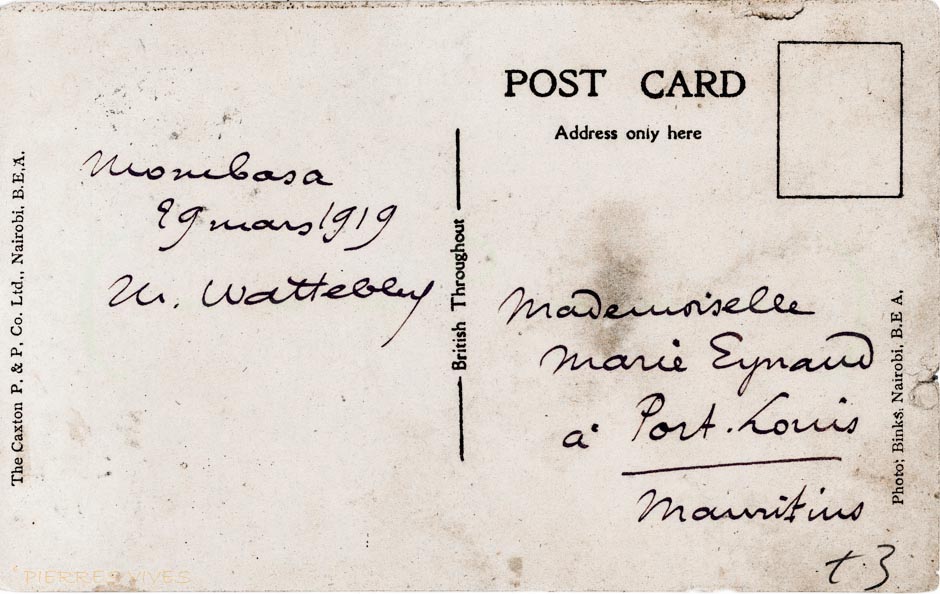 POST CARD
Address only here
Mombasa
29 mars 1919
M. Wattebled
British Throughout
Mademoiselle
Marie Eynaud
à Port-Louis
Mauritius
t3
The Caxton P. & P. Co. Ltd., Nairobi, B.E.A.
Photo; Binks; Nairobi, B.E A.
PIERRES VIVES